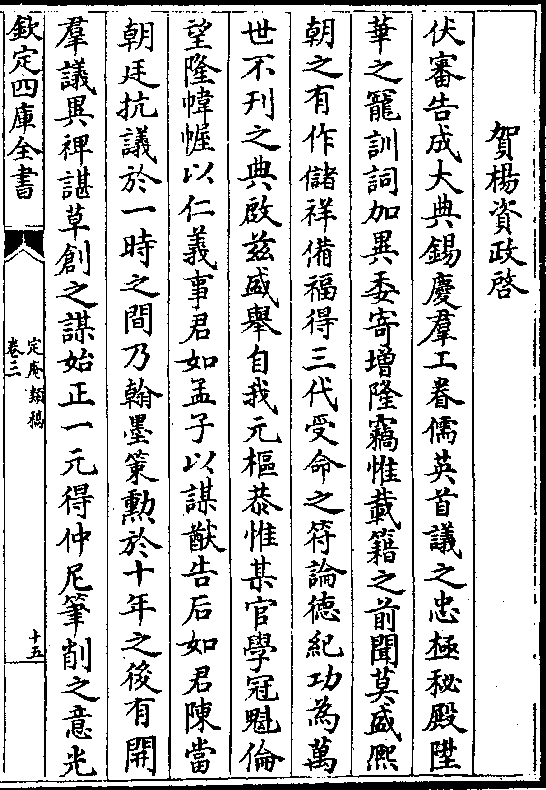 賀楊資政啓
伏審告成大典錫慶羣工眷儒英首議之忠極秘殿陞
華之寵訓詞加異委寄増隆竊惟載籍之前聞莫盛熙
朝之有作儲祥備福得三代受命之符論徳紀功為萬
世不刊之典啟兹盛舉自我元樞恭惟某官學冠魁倫
望隆幃幄以仁義事君如孟子以謀猷告后如君陳當
朝廷抗議於一時之間乃翰墨策勲於十年之後有開
羣議異裨諶草創之謀始正一元得仲尼筆削之意光
欽定四庫全書
定庵類稿
卷三
十五